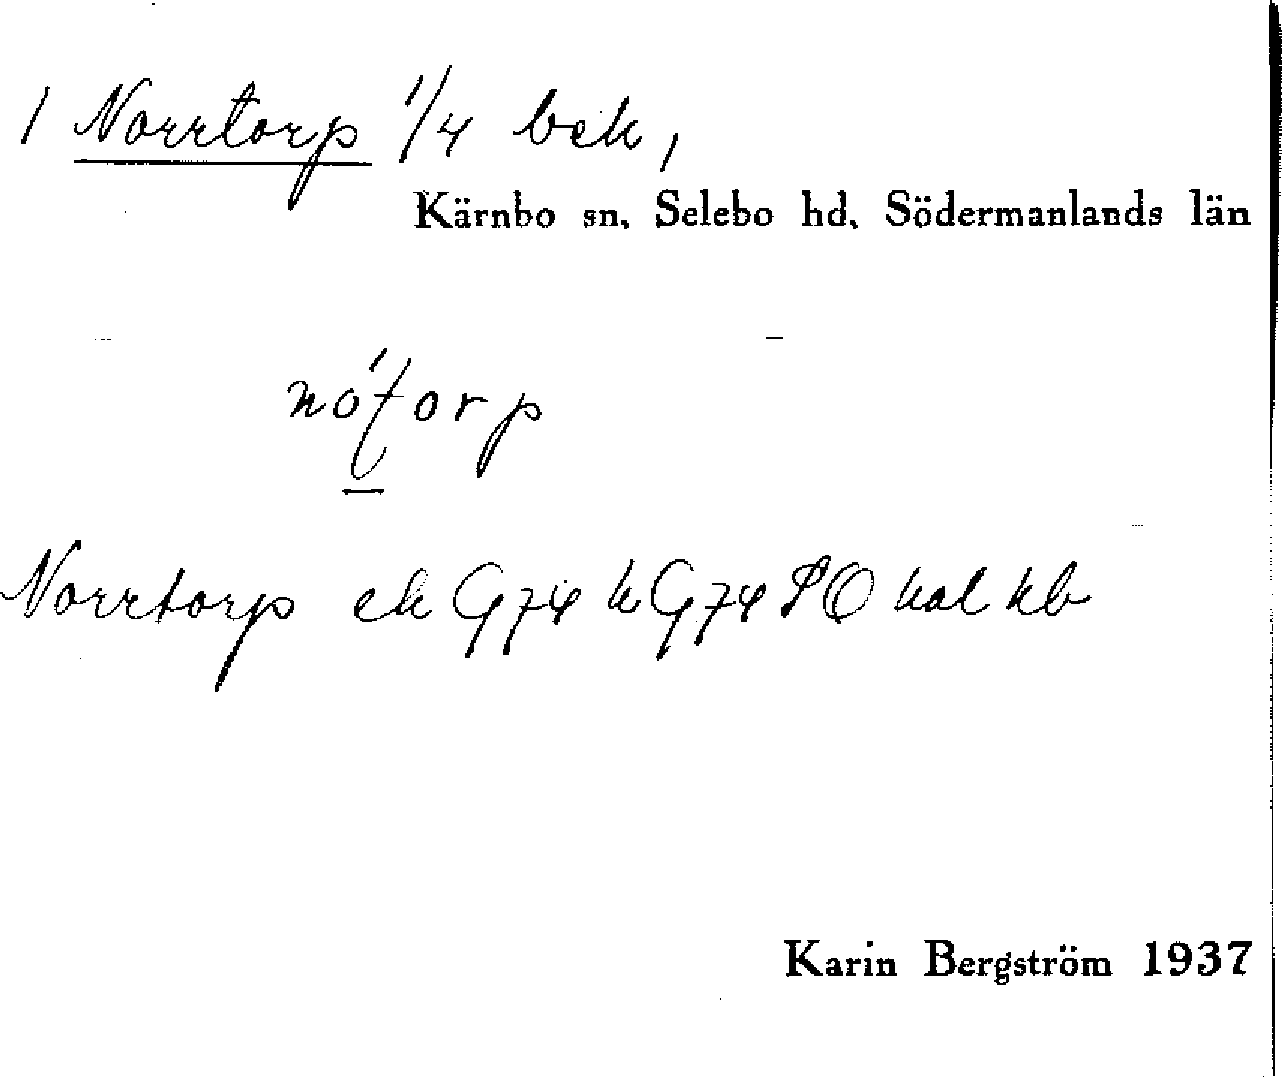 1 Norrtorp 1/4 bek,
Kärnbo sn. Selebo hd. Södermanlands län
Norrtorp ek G74 k G74 SO kal kb
Karin Bergström 1937